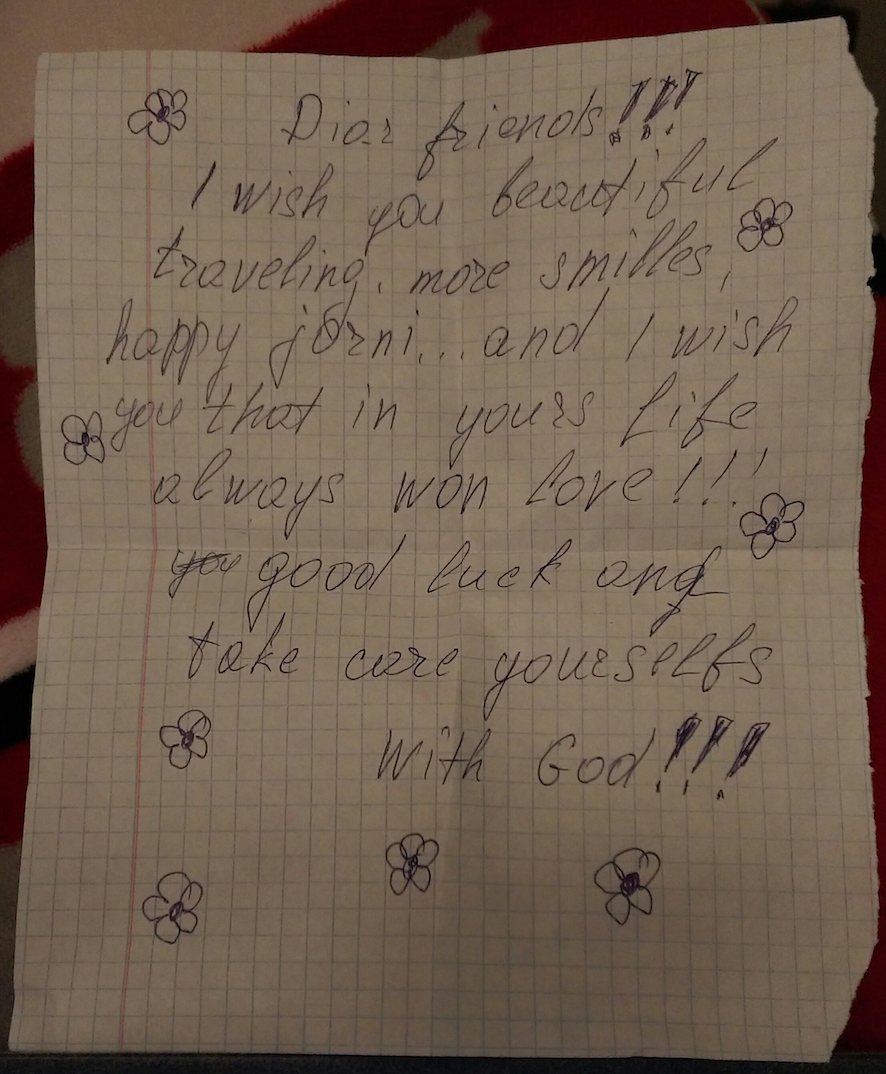 Diar friends!!!
I wish you beautiful
traveling, more smilles,
happy jorni... and I wish
you that in yours life
always won love!!!
you good luck and
take care yourselfs
With God!!!